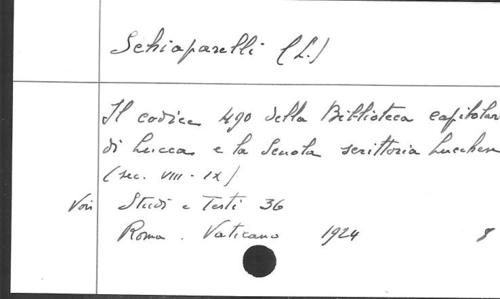 Schiaparelli (L.)
Il codice 490 della Biblioteca capitolar
di Lucca e la Scuola scrittoria Lucchese
(sec. VIII - IX)
Voir Studi e Testi 36
Roma. Vaticano 1924 8